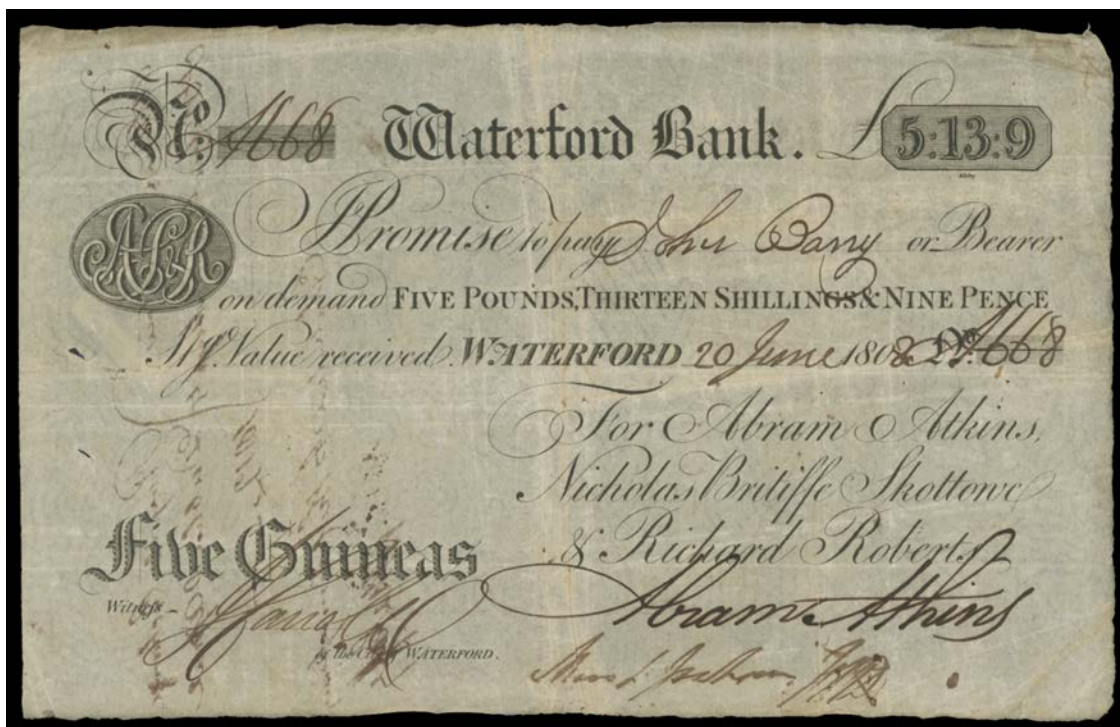 No. 1668 Waterford Bank. £ 5:13:9
I Promise to pay John Barry or Bearer
on demand FIVE POUNDS, THIRTEEN SHILLINGS & NINE PENCE
Stg. Value received. WATERFORD 20 June 1808 No. 1668
For Abram Atkins,
Nicholas Britiffe Skottowe
& Richard Roberts,
Five Guineas
Abram Atkins
Witness
of the City of WATERFORD.